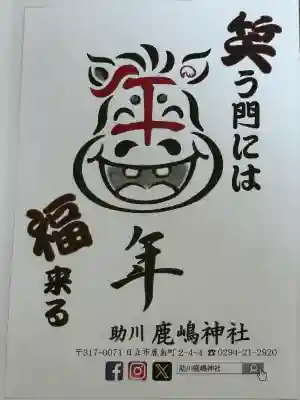 笑う門には
福来る
午
年
助川 鹿嶋神社
〒317-0071 日立市鹿島町2-4-4 ☎0294-21-2920
助川鹿嶋神社